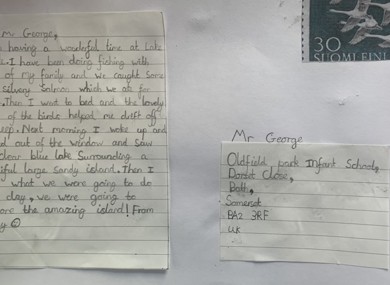 Mr George,
having a wonderful time at Lake
I have been doing fishing with
of my family and we caught some
silvery salmon which we ate for
Then I went to bed and the lovely
of the birds helped me drift off
Next morning I woke up and
out of the window and saw
clear blue lake surrounding a
large sandy island. Then I
what we were going to do
day, we were going to
the amazing island! From
30
SUOMI FINL
Mr George
Oldfield park Infant School,
Dorset Close,
Bath,
Somerset
BA2 3RF
UK